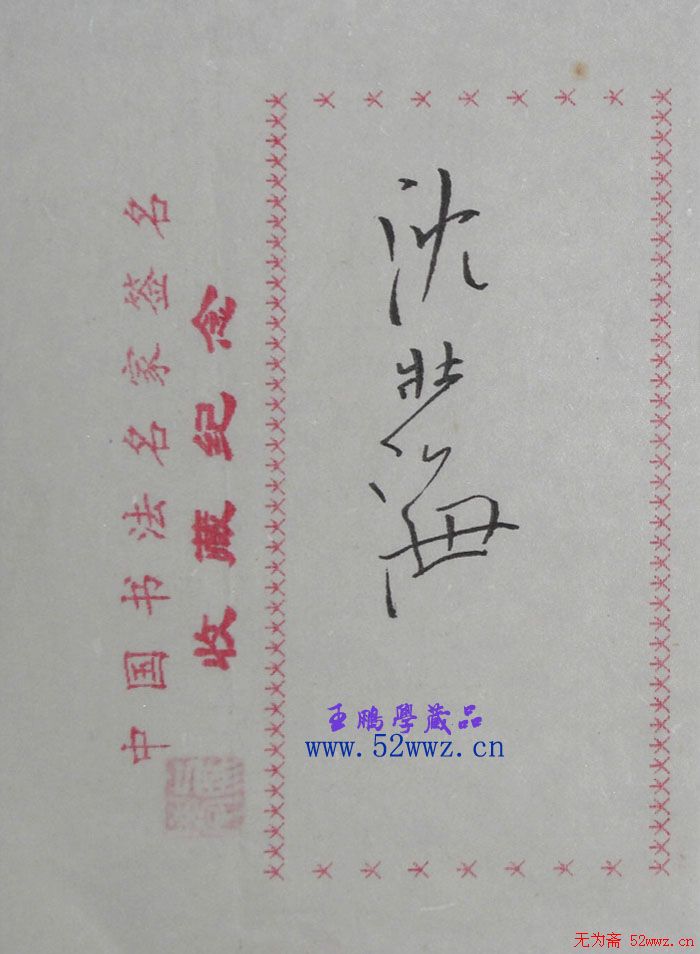 中国书法名家签名
收藏纪念
沈壮海
王鵬學藏品
www.52wwz.cn
无为斋 52wwz.cn